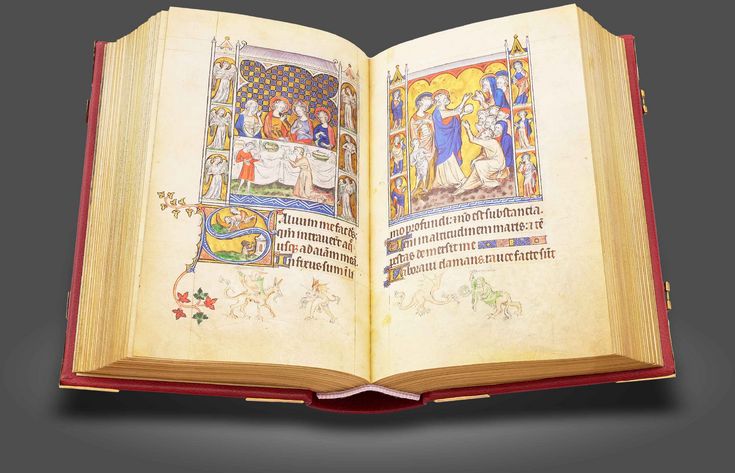 Saluum me fac ds:
qm intrauere aq
usq; ad aiam mea
Infixus sum i li
mo profundi: & no est substancia.
Ueni in altitudinem maris: & te
pestas demersit me
Laboraui clamans, rauce facte sūt